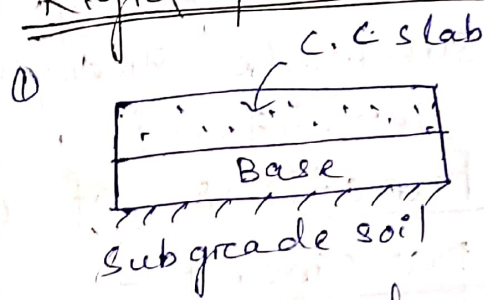 C.C slab
①
Base
Subgrade soil